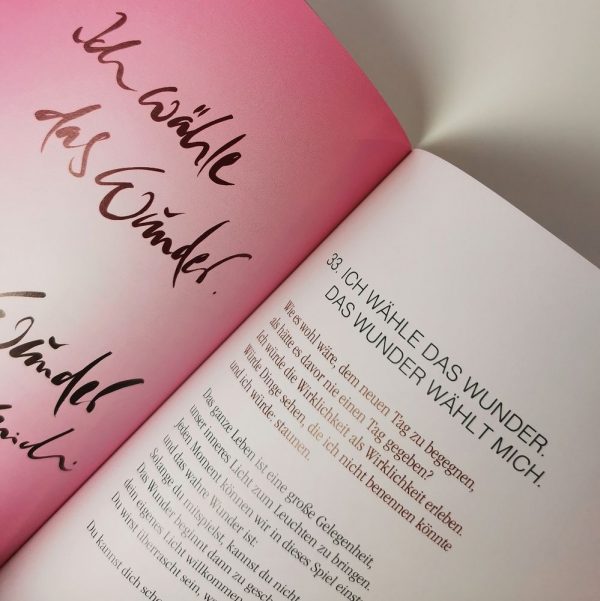 Ich wähle
das Wunder.
Wunder
33. ICH WÄHLE DAS WUNDER.
DAS WUNDER WÄHLT MICH.
Wie es wohl wäre, dem neuen Tag zu begegnen,
als hätte es davor nie einen Tag gegeben?
Ich würde die Wirklichkeit als Wirklichkeit erleben.
Würde Dinge sehen, die ich nicht benennen könnte
und ich würde: staunen.
Das ganze Leben ist eine große Gelegenheit,
unser inneres Licht zum Leuchten zu bringen.
Jeden Moment können wir in dieses Spiel einst
Solange du mitspielst, kannst du nicht
und das wahre Wunder ist:
Das Wunder beginnt dann zu gesch
dein eigenes Licht willkommen
Du wirst überrascht sein, w
Du kannst dich scho